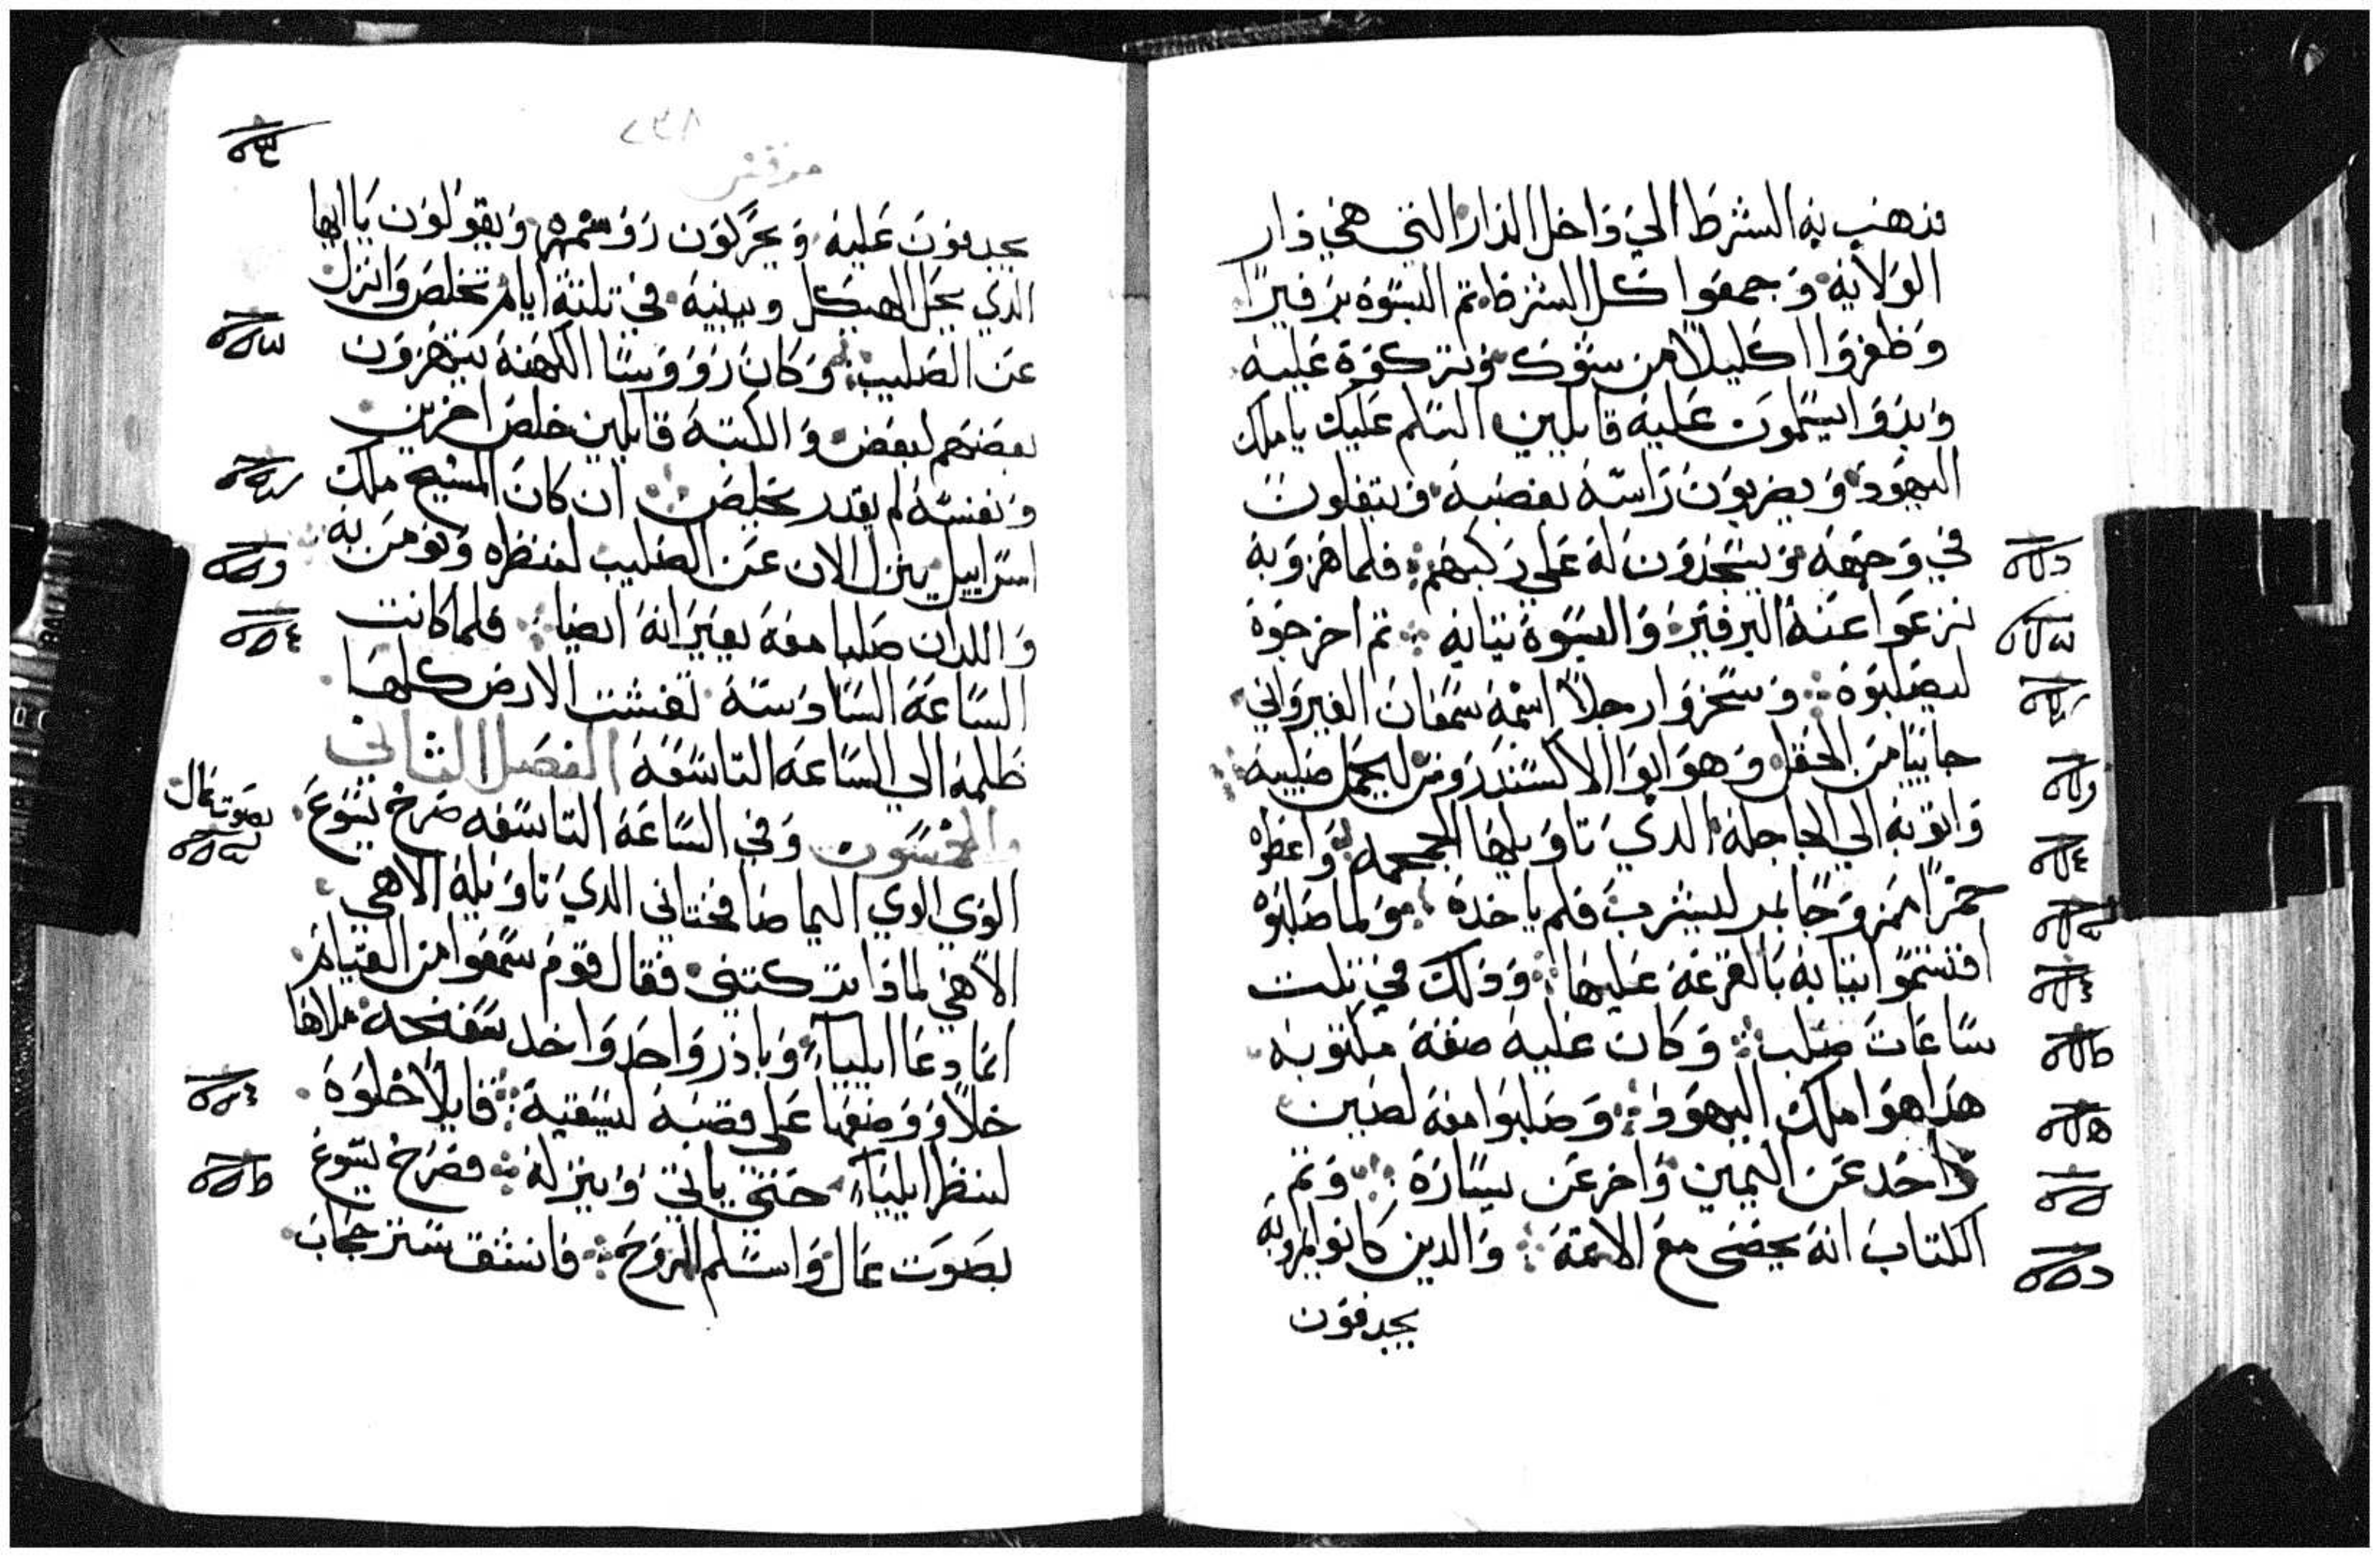 فذهب به الشرط الي داخل الدار التي هي دار
الولاية وجمعوا كل الشرط تم البسوه برفيرًا
وظفروا اكليلا من شوك وتركوه عليه
وبدوا يسلمون عليه قايلين السلم عليك يا ملك
اليهود ويضربون راسه بقصبة ويتفلون
في وجهه ويسجدون له علي ركبهم فلما هزو به
نزعوا عنه البرفير والبسوه تيابه تم اخرجوه
ليصلبوه وسخروا رجلا اسمه سمعان القيرواني
جاييا من الحقل وهو ابوا الاكسندروس ليحمل صليبه
واتو به الي الجاجلة الدي تاويلها الجمجمه واعطوه
خمرًا ممزوجًا بمر ليشرب فلم ياخده ولما صلبوه
اقتسموا تيابه بالقرعة عليها ودلك في تلت
ساعات صلب وكان عليه صفة مكتوبه
هدا هوا ملك اليهود وصلبوا معه لصين
واحد عن اليمين واخر عن يساره وتم
الكتاب انه يحصى مع الاتمة والدين كانوا يمروا به
يجدفون
٢٣٨
مرقس
يجدفون عليه ويحركون روسهم ويقولون يا ايها
الدي يحل الهيكل ويبنيه في تلتة ايام تخلص وانزل
عن الصليب وكان رووسا الكهنة يتهزون
بعضهم لبعض والكتبة قايلين خلص اخرين
ونفسه لم يقدر يخلص ان كان المسيح ملك
اسراييل ينزل الان عن الصليب لننظره ونومن به
واللدان صلبا معه يعيرانه ايضا فلما كانت
الساعة السادسة تغشت الارض كلها
ظلمة الي الساعة التاسعة الفصل الثاني
والخمسون وفي الساعة التاسعه صرخ يسوع
بصوت عال
الوي الوي اليما صافختاني الدي تاويله الاهي
الاهي لمادا تركتني فقال قوم سمعوا من القيام
انما دعا ايلياء وبادر واحد واخد سفنجة ملاها
خلًا ووضعها على قصبة ليسقيه قايلًا خلوه
لننظر ايلياء حتى ياتي وينزله فصرخ يسوع
بصوت عال واسلم الروح فانشق ستر حجاب